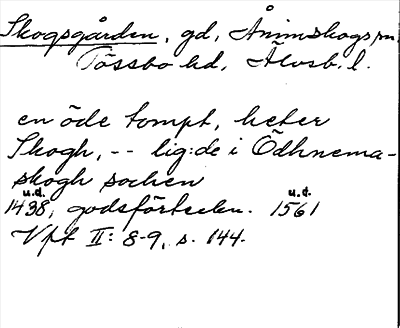 Skogsgården, gd, Ånimskogs sn,
Tössbo hd, Älvsb. l.
en öde tompt, heter
Skogh, -- lig:de i Ödhnema-
skogh sochen
u.d. u.d.
1438, godsförteckn. 1561
Vpt II: 8-9, s. 144.